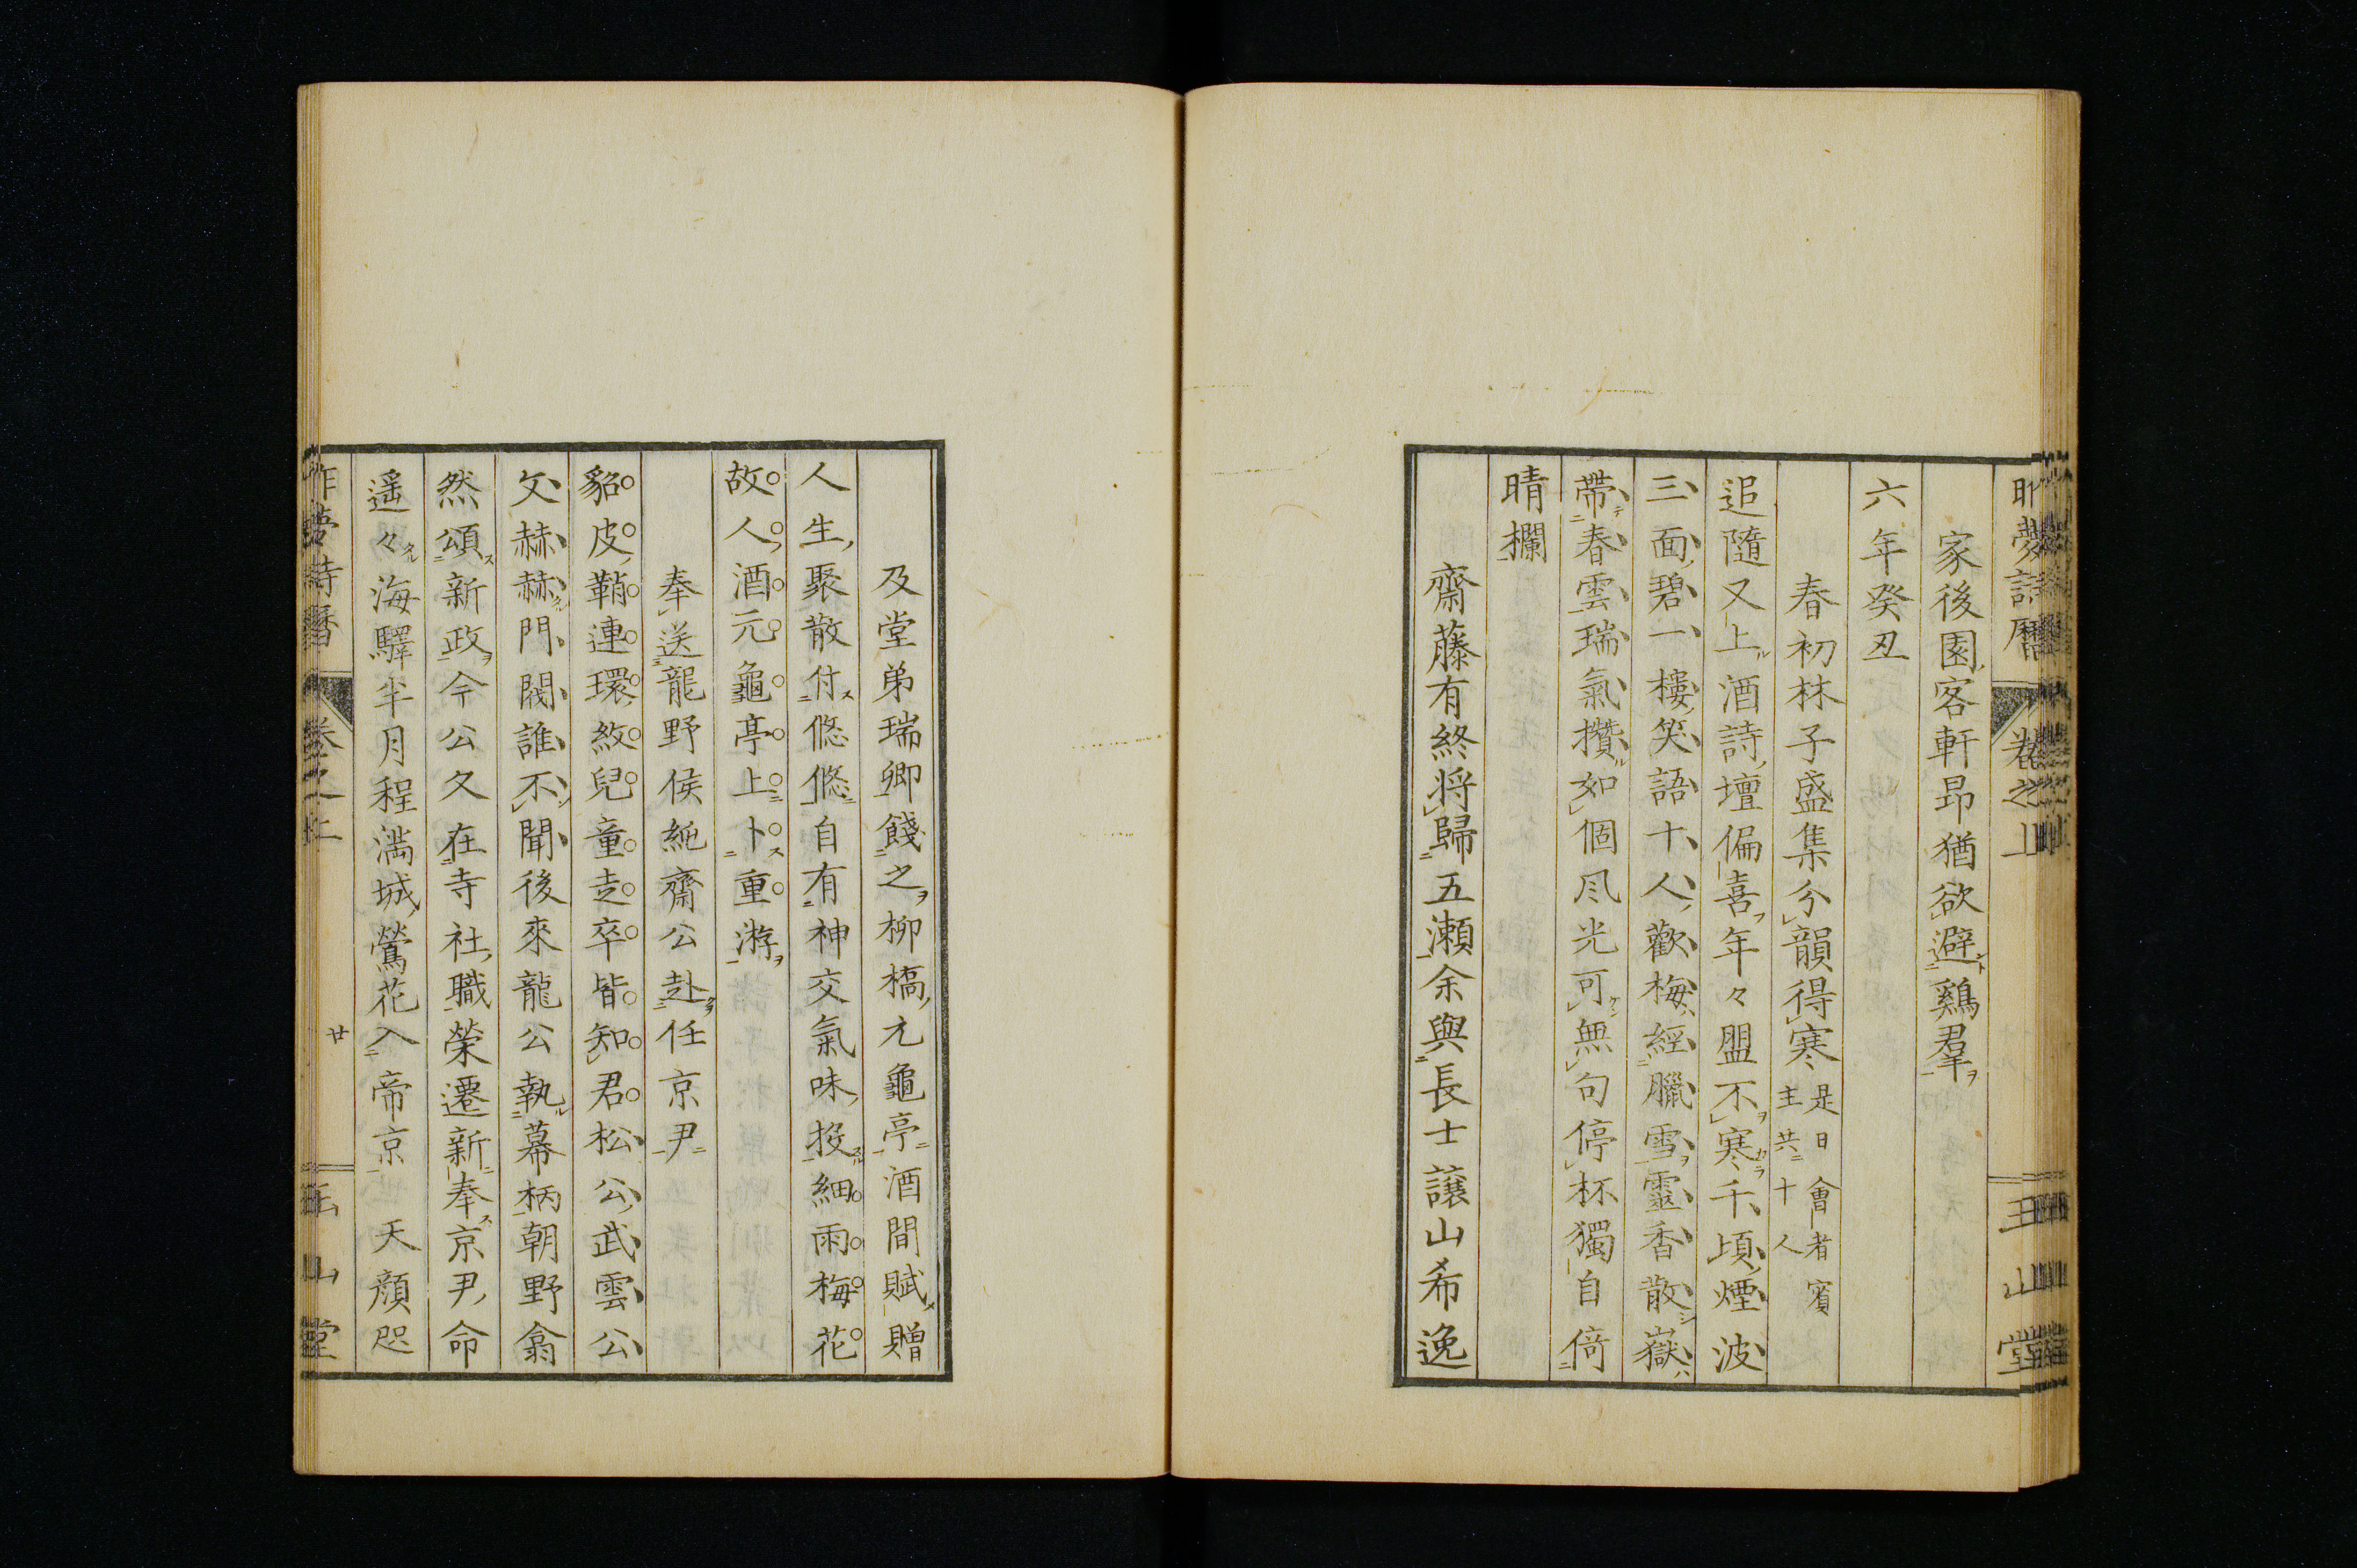 昨夢詩曆 卷之上 玉山堂
家後園客軒昂猶欲避鷄羣
六年癸丑
春初林子盛集分韻得寒 是日會者賓主共十人
追隨又上酒詩壇偏喜年々盟不寒千頃煙波
三面碧一樓笑語十人歡梅經臘雪靈香散嶽
帶春雲瑞氣攢如個風光可無句停杯獨自倚
晴欄
齋藤有終将歸五瀬余與長士讓山希逸
及堂弟瑞卿餞之柳橋亢龜亭酒間賦贈
人生聚散付悠悠自有神交氣味投細雨梅花
故人酒元龜亭上卜重游
奉送龍野侯絁齋公赴任京尹
貂皮鞘連環紋兒童走卒皆知君松公武雲公
文赫赫門閥誰不聞後來龍公執幕柄朝野翕
然頌新政今公久在寺社職榮遷新奉京尹命
遥々海驛半月程満城鶯花入帝京 天顔咫
昨夢詩曆 卷之上 廿 玉山堂